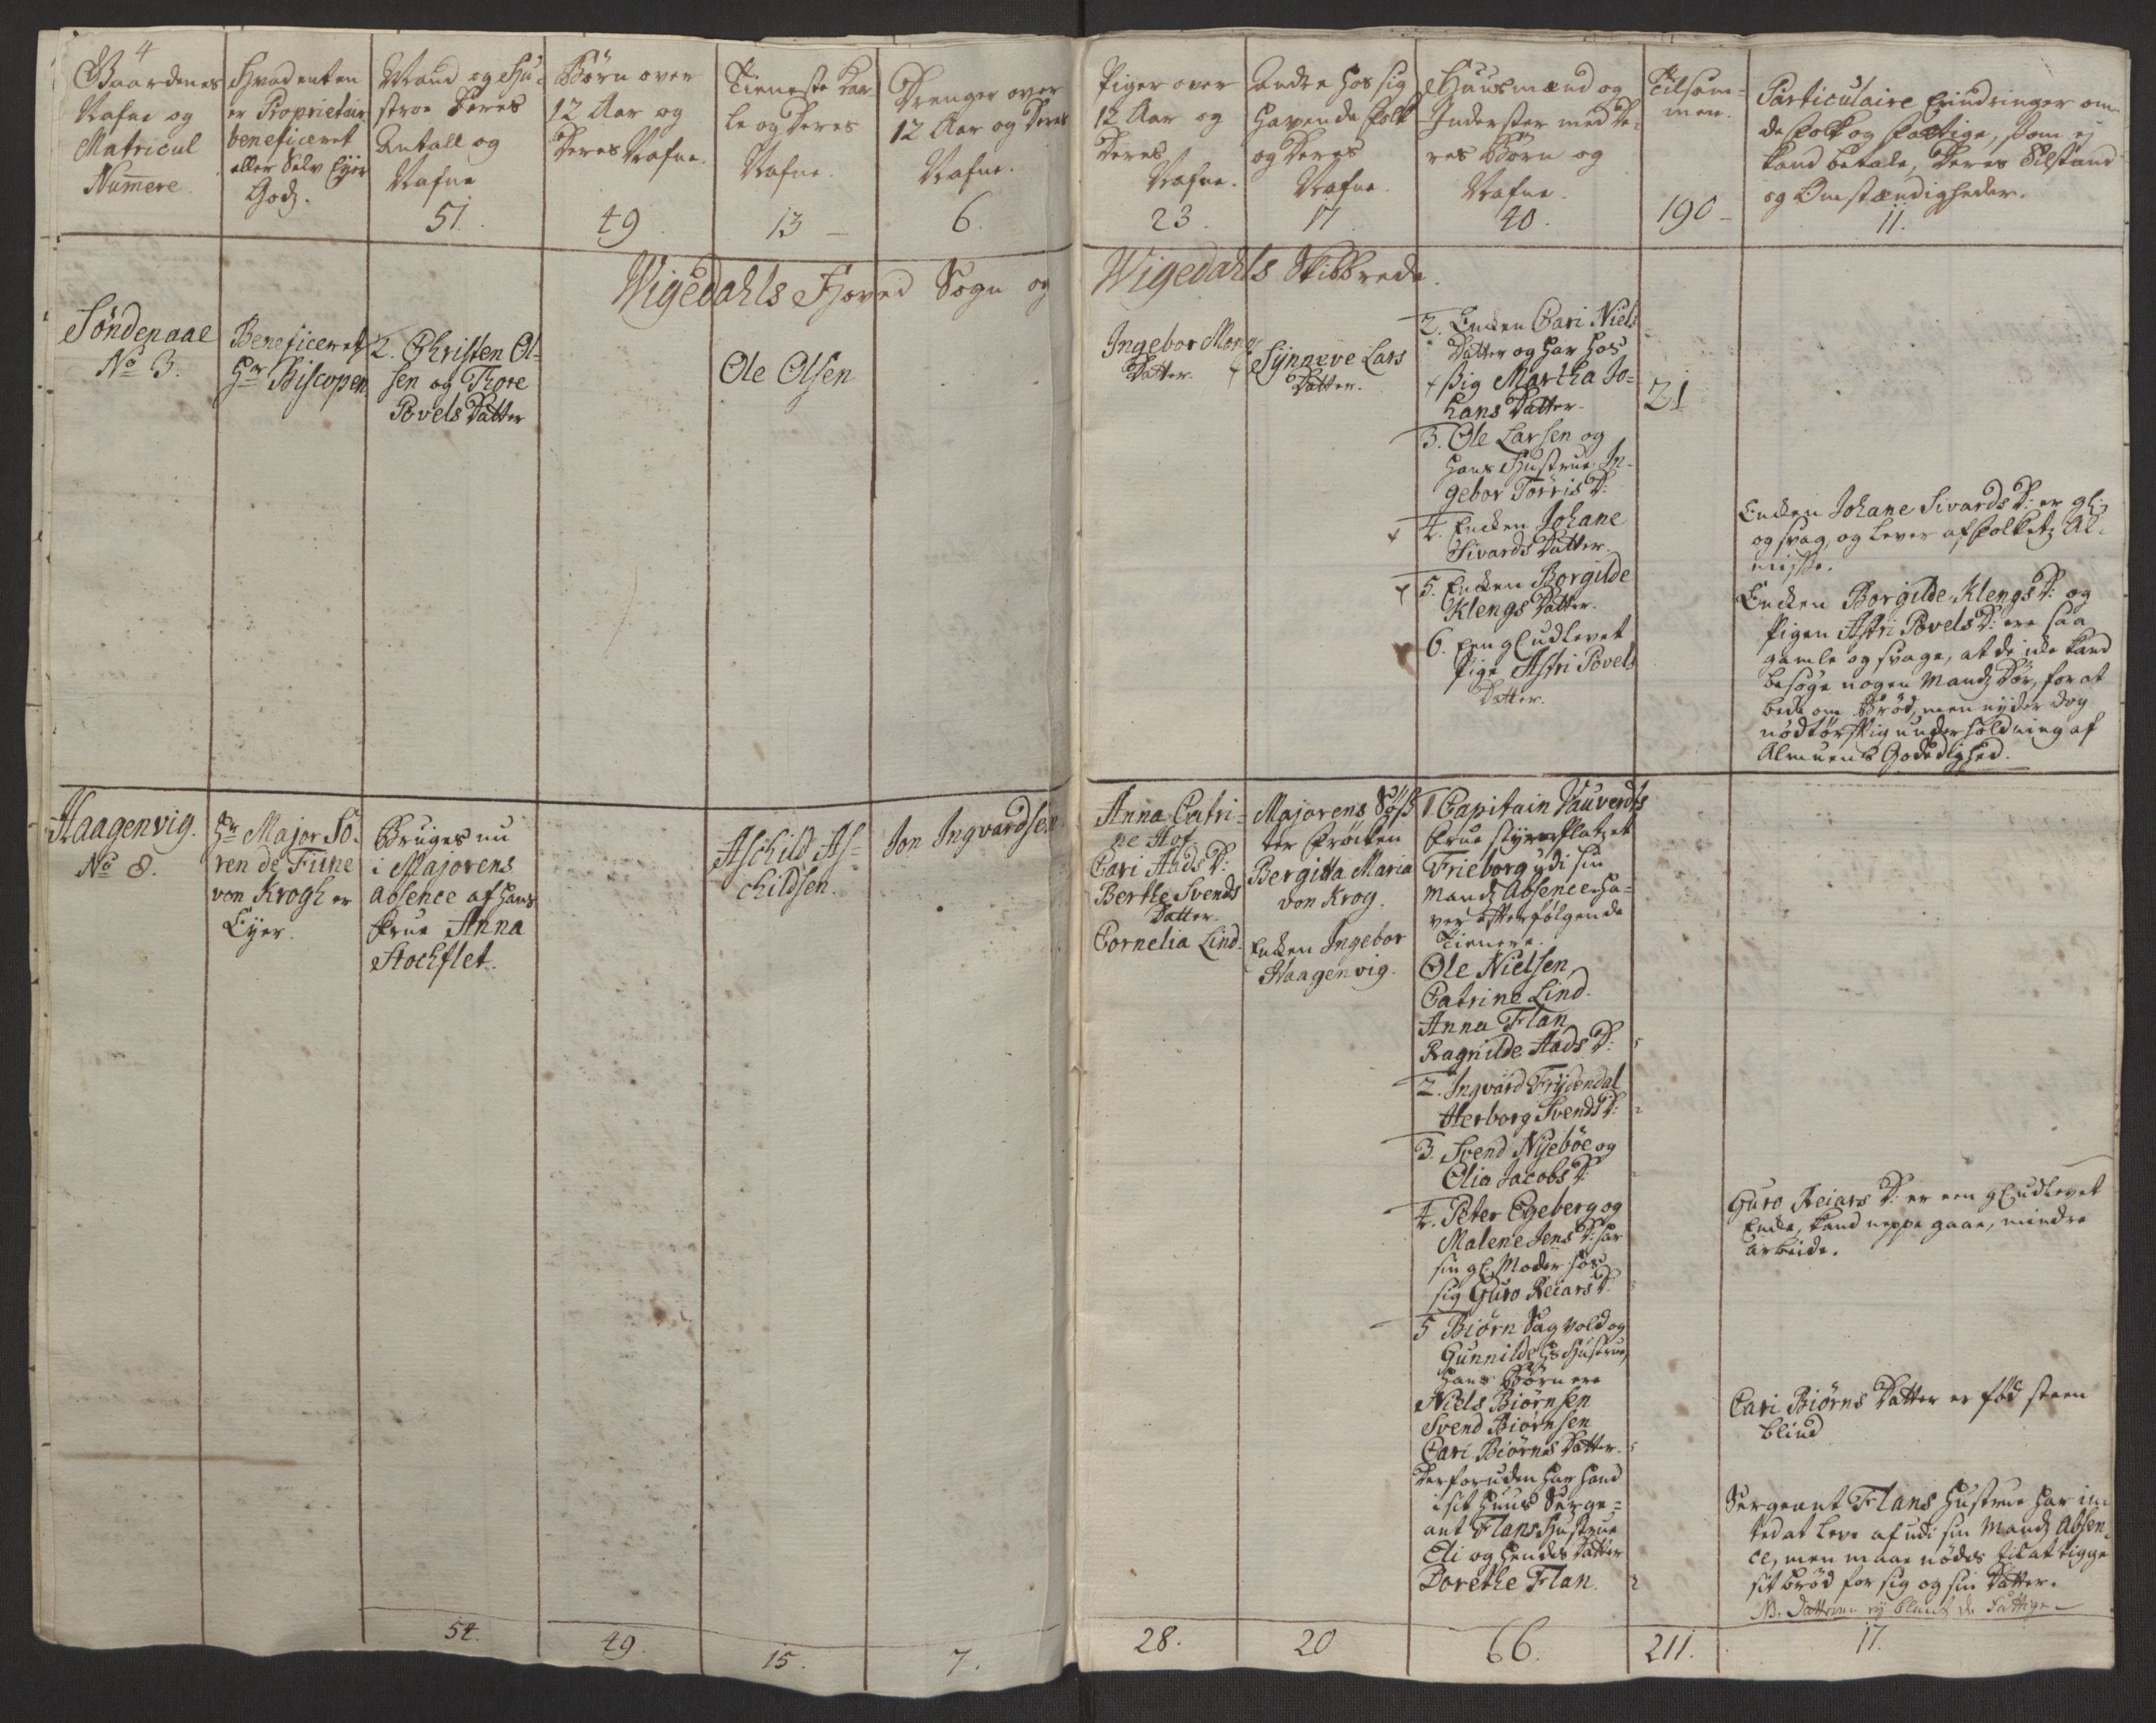 4
Gaardenes
Nafne og
Matricul
Numere.
Hvad enten
er Proprietair
beneficeret
eller Selv Eyer
Gods.
Mand og Hu-
stroe Deres
Antall og
Nafne
51.
Børn over
12 Aar og
Deres Nafne.
49.
Tieneste Kar
le og Deres
Nafne.
13
Drenger over
12 Aar og Deres
Nafne.
6.
Piger over
12 Aar og
Deres
Nafne.
23.
Andre hos sig
havende Folk
og Deres
Nafne.
17.
Huusmænd og
Inderster med De-
res Børn og
Nafne.
40.
Tilsam-
men.
190
Particulaire Erindringer om
de Folk og Fattige, som ej
kand betale, Deres Tilstand
og Omstændigheder.
11.
Wigedahls Hoved Sogn og
Wigedahls Skibbrede.
Søndenaae
No 3.
Beneficeret
Hr Biscopen
2. Christen Ol-
sen og Thore
Povels Datter
Ole Olsen
Ingebor Mons
Datter.
Synneve Lars
Datter.
2. Encken Cari Niels
Datter og har hos
sig Martha Jo-
hans Datter
3. Ole Larsen og
hans Hustrue In-
gebor Tørris D:
4. Encken Johane
Sivards Datter.
5. Encken Borgilde
Klengs Datter.
6. Een gl udlevet
Pige Astri Povels
Datter.
21
Encken Johane Sivards D: er gl:
og svag, og lever af Folketz Al-
misse.
Encken Borgilde Klengs D: og
Pigen Astri Povels D: ere saa
gamle og svage, at de icke kand
besøge nogen Mands Dør, for at
bede om Brød, men nyder dog
nødtørftig underholdning af
Almuens Godedighed.
Haagenvig.
No 8.
Hr Major Sø-
ren de Fiine
von Krogh er
Eyer.
Bruges nu
i Majorens
absence af hans
Frue Anna
Stochflet.
Aschild As-
childsen.
Jon Ingvardsen
Anna Catri-
ne Hof
Cari Aads D:
Berthe Svends
Datter.
Cornelia Lind.
Majorens Søs-
ter Frøcken
Bergitta Maria
von Krog.
Encken Ingebor
Haagenvig.
1 Capitain Vauverdts
Frue styrer Platzet
Frieborg udi sin
Mands Absence. Ha-
ver efterfølgende
Tienere.
Ole Nielsen
Catrine Lind.
Anna Flan
Ragnilde Aads D: 5
2. Ingvard Frydendal
Herborg Svends D: 2
3. Svend Nyebøe og
Elia Jacobs D:
4. Peter Egeberg og
Malene Jens D: har
sin gl. Moder hos
sig Guro Reiars D.
5 Biørn Sagvold og
Gunnilde hs Hustrue,
hans Børn ere
Niels Biørnsen
Svend Biørnsen
Cari Biørns Datter. 5
Derforuden har hand
i sit Huus Serge-
ant Flans Hustrue
Eli og hendes Datter
Dorethe Flan. 2
Guro Reiars D: er een gl udlevet
Encke, kand neppe gaae, mindre
arbeide.
Cari Biørns Datter er fød steen
blind
Sergeant Flans Hustrue har in-
ted at leve af udi sin Mands Absen-
ce, men maae nødes til at tigge
sit brød for sig og sin Datter.
NB. Datteren ej blant de Fattige
52.
49.
15.
7.
28.
20
66.
211.
17.